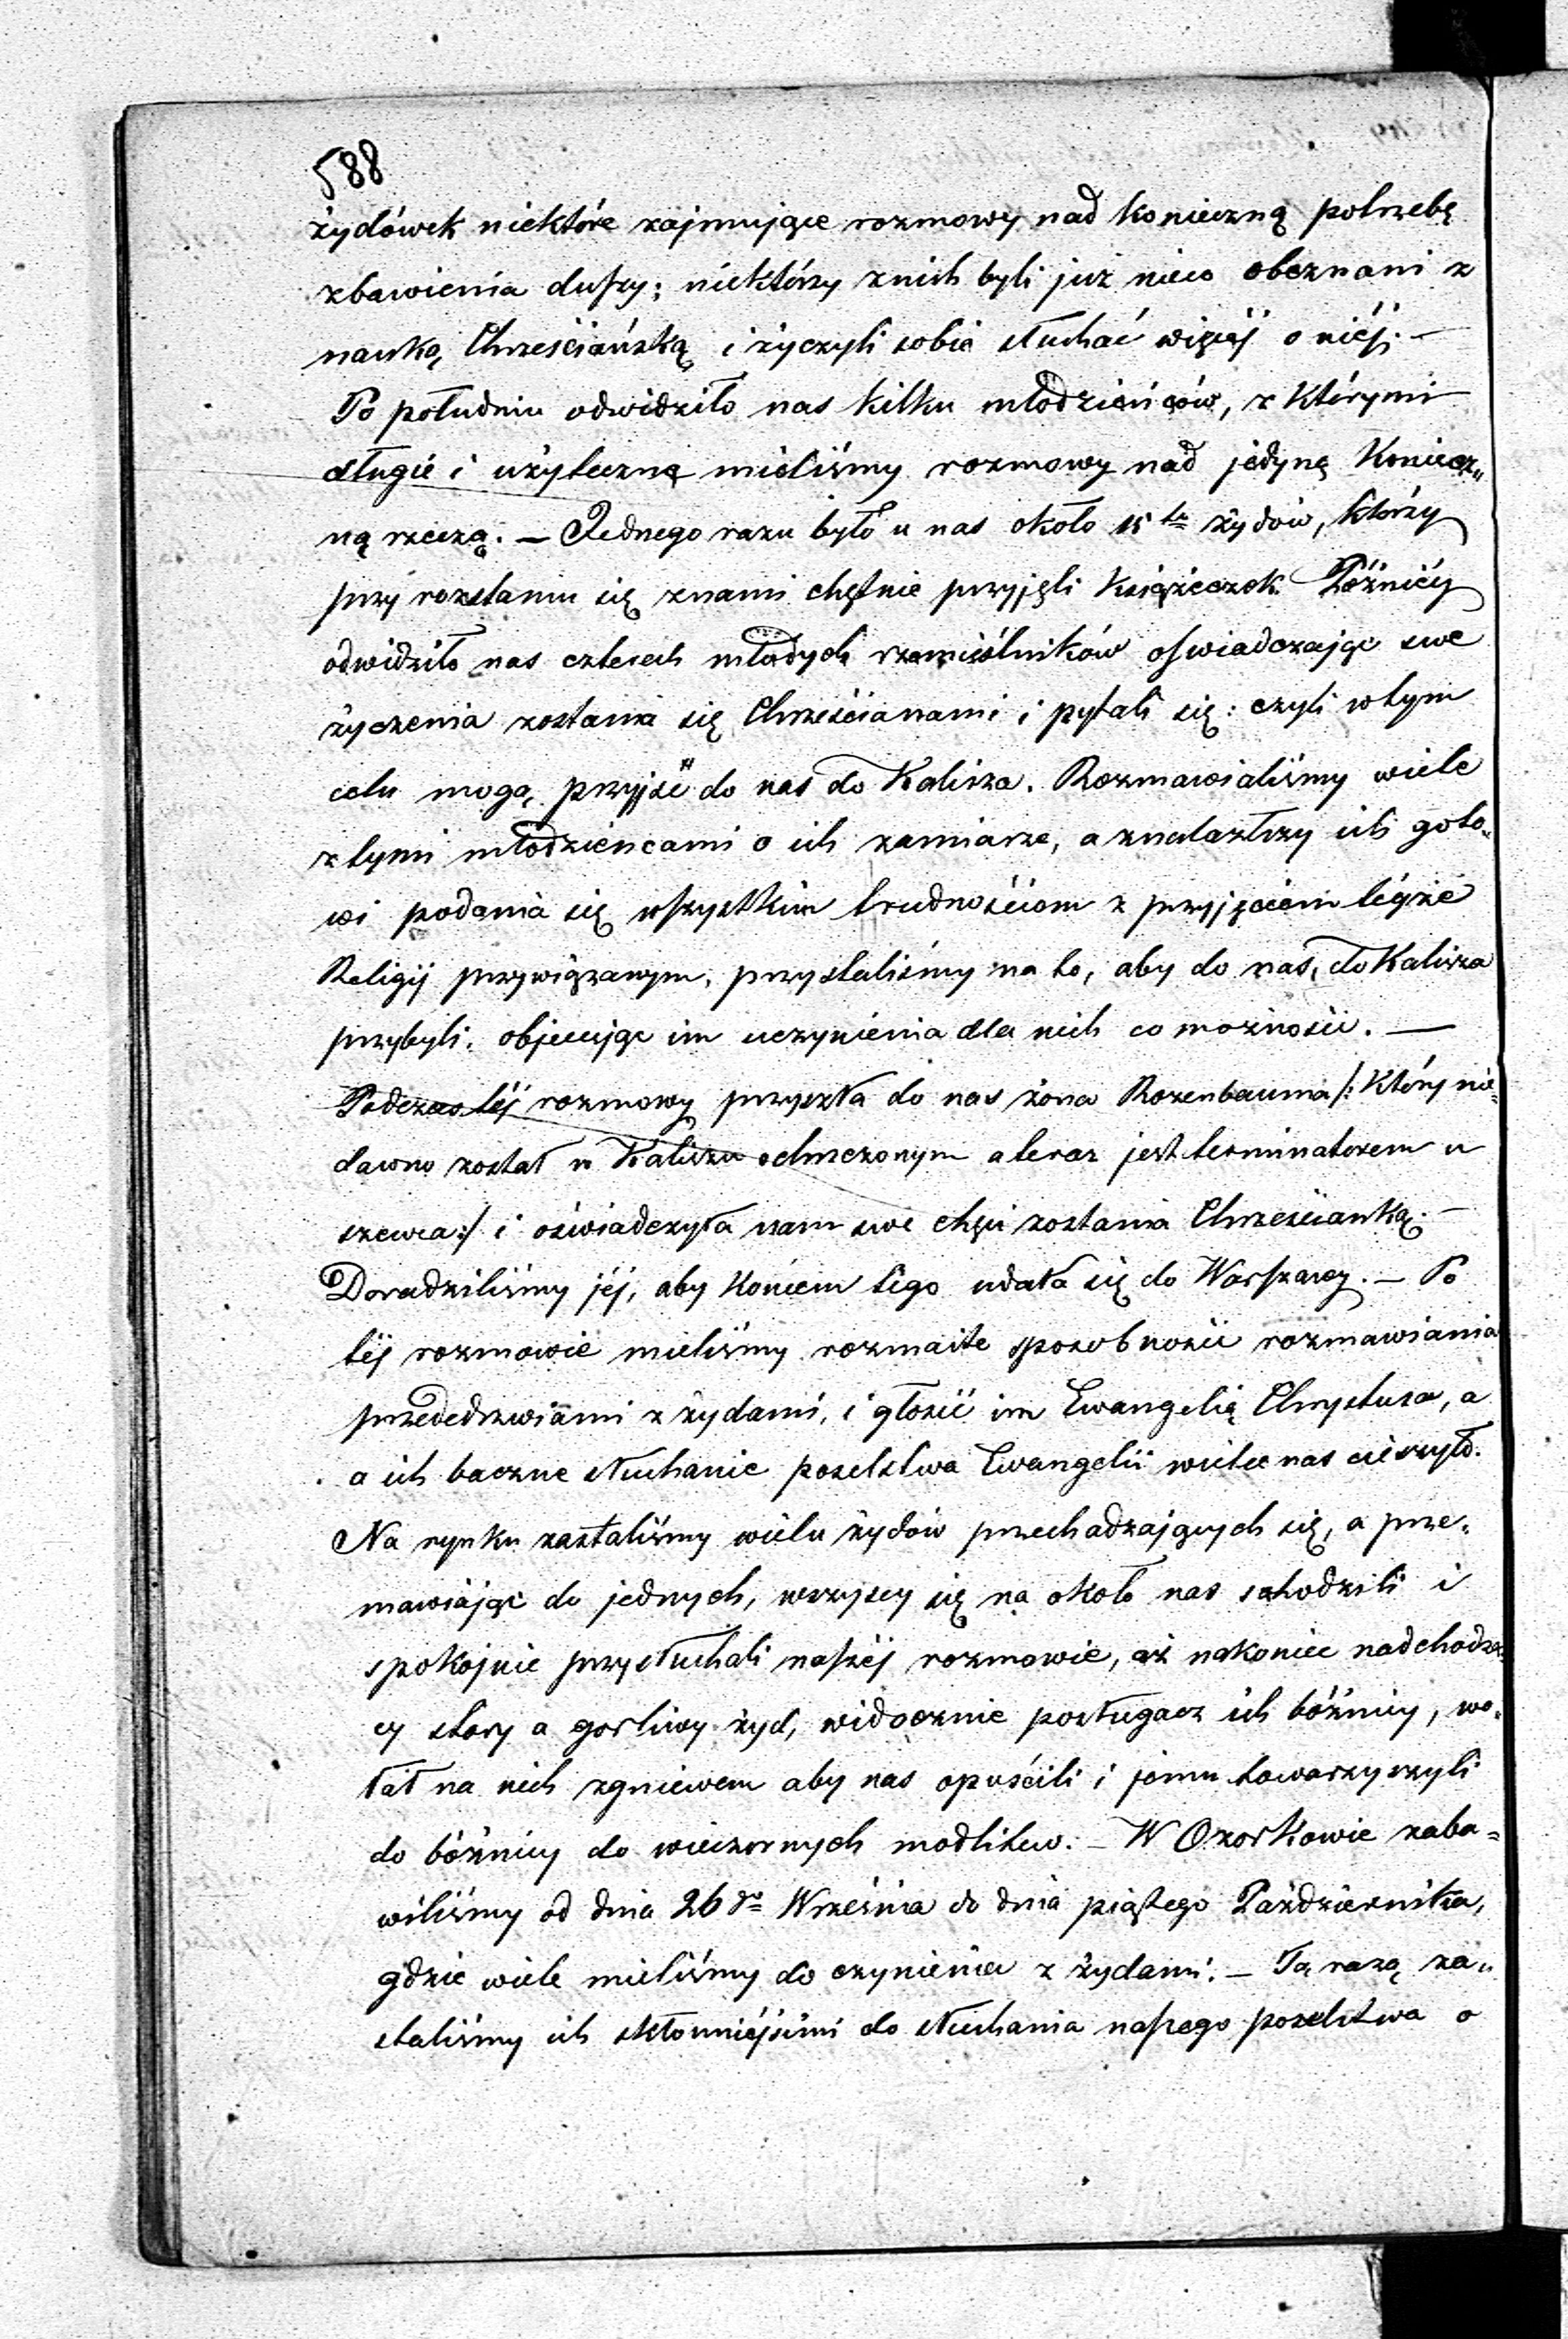 588
żydówek niektóre zajmujące rozmowy nad konieczną potrzebę
zbawienia duszy; niektórzy znich byli już nieco obeznani z
nauką Chrześciańską i życzyli sobie słuchać więcéj o niéj. —
Po południu odwidziło nas kilku młodzieńców, z którymi
długie i użyteczne mieliśmy rozmowy nad jedyną koniecz„
ną rzeczą. — Jednego razu było u nas około 15tu żydów, którzy
przy rozstaniu się znami chętnie przyjęli książeczek. Późniéy
odwidziło nas czterech młodych rzemiéślników oświadczając swe
życzenia zostania się Chrześcianami i pytali się: czyli wtym
celu mogą przyjść do nas do Kalisza. Rozmawialiśmy wiele
z tymi młodzieńcami o ich zamiarze, a znalazłszy ich goto„
wi podania się wszystkim trudnościom z przyjęciem tégże
Religij przywiązanym, przystaliśmy na to, aby do nas, do Kalisza
przybyli, objecując im uczynienia dla nich co możności. —
Podczas téj rozmowy przyszła do nas żona Rozenbauma /: Który nie„
dawno został w Kaliszu ochrzczonym a teraz jest terminatorem u
szewca :/ i oświadczyła nam swe chęci zostania Chrześcianką. —
Doradziliśmy jéj, aby końcem tégo udała się do Warszawy. — Po
téj rozmowie mieliśmy rozmaite sposobności rozmawiania
przededrzwiami z żydami, i głosić im Ewangelią Chrystusa, a
a ich baczne słuchanie poselstwa Ewangelii wielce nas cieszyło.
Na rynku zastaliśmy wielu żydów przechadzających się, a prze„
mawiając do jednych, wszyscy się na około nas schodzili i
spokojnie przysłuchali naszéj rozmowie, aż nakoniec nadchodzą„
cy stary a gorliwy żyd, widocznie posługacz ich bóżnicy, wo„
łał na nich zgniewem aby nas opuścili i jemu towarzyszyli
do bóżnicy do wieczornych modlitew. — W Ozorkowie zaba=
wiliśmy od dnia 26go Września do dnia piątego Października,
gdzie wiele mieliśmy do czynienia z żydami. — Tą razą za„
staliśmy ich skłonniéjsimi do słuchania naszego poselstwa o